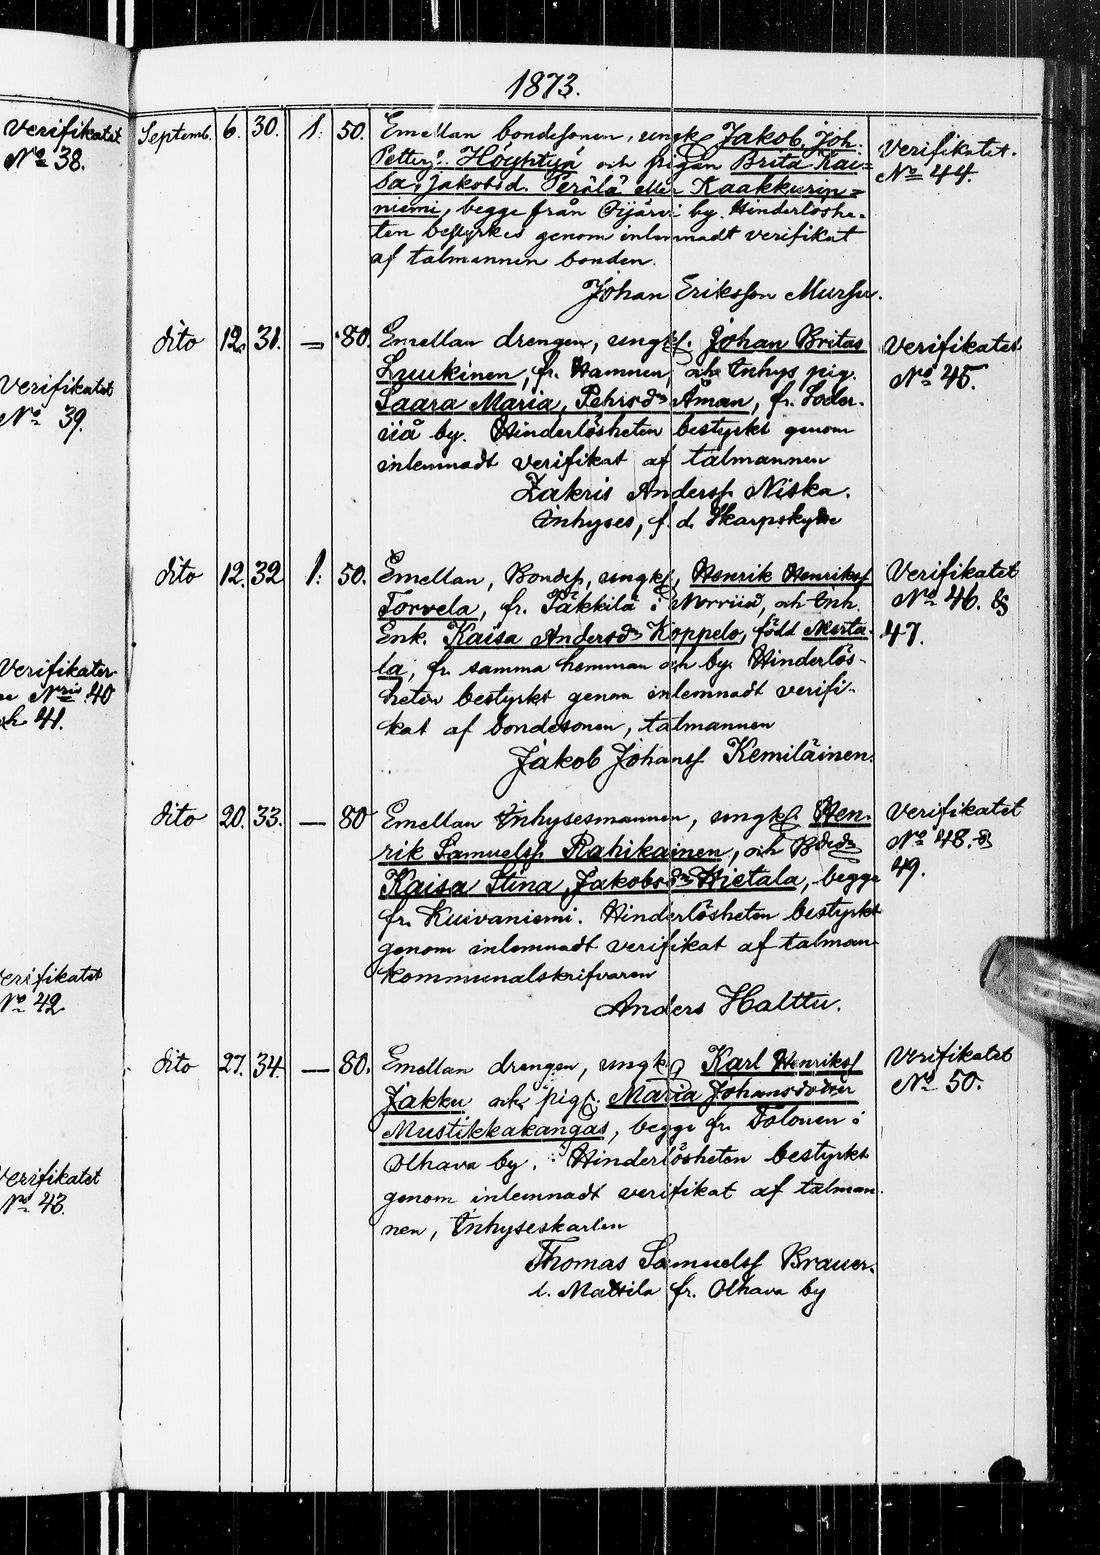 1873.
Verifikatet
No 38.
Verifikatet
No 39.
Verifikater
Nris 40
och 41.
Verifikatet
No 42
Verifikatet
No 43.
Septemb. 6. 30. 1. 50. Emellan bondesonen, ungk. Jakob Joh.
Petterss. Höyhtyä och pigan Brita Kai-
sa, Jakobsd. Perälä eller Kaakkurin-
niemi, begge från Oijärvi by. Hinderlöshe-
ten bestyrkes genom inlemnadt verifikat
af talmannen bonden
Johan Eriksson Mursu.
Verifikatet.
No 44.
dito 12. 31. — 80. Emellan drengen, ungk. Johan Britas
Luukinen, fr. Hamnen, och Inhys pig.
Saara Maria, Pehrsdr Åman, fr. Söder-
iiå by. Hinderlösheten bestyrkt genom
inlemnadt verifikat af talmannen
Zakris Anderss. Niska.
Inhyses, f. d. Skarpskytte
Verifikatet
No 45.
dito 12. 32 1. 50. Emellan, Bondes., ungk., Henrik Henrikss.
Torvela, fr. Päkkilä i Norriiå, och Inh.
Enk. Kaisa Andersdr Koppelo, född Merta-
la, fr. samma hemman och by. Hinderlös-
heten bestyrkt genom inlemnadt verifi-
kat af bondesonen, talmannen
Jakob Johanss. Kemiläinen.
Verifikatet
No 46. &
47.
dito 20. 33. — 80 Emellan Inhysesmannen, ungk. Hen-
rik Samuelss. Rahikainen, och Bdedr
Kaisa Stina Jakobsdr Hietala, begge
fr. Kuivaniemi. Hinderlösheten bestyrkt
genom inlemnadt verifikat af talman
kommunalskrifvaren
Anders Halttu.
Verifikatet
No 48. &
49.
dito 27. 34. — 80. Emellan drengen, ungk. Karl Henrikss.
Jakku och pig. Maria Johansdotter
Mustikkakangas, begge fr. Tolonen i
Olhava by. Hinderlösheten bestyrkt
genom inlemnadt verifikat af talman-
nen, Inhyseskarlen
Thomas Samuelss. Brauer.
l. Mattila fr. Olhava by
Verifikatet
No 50.